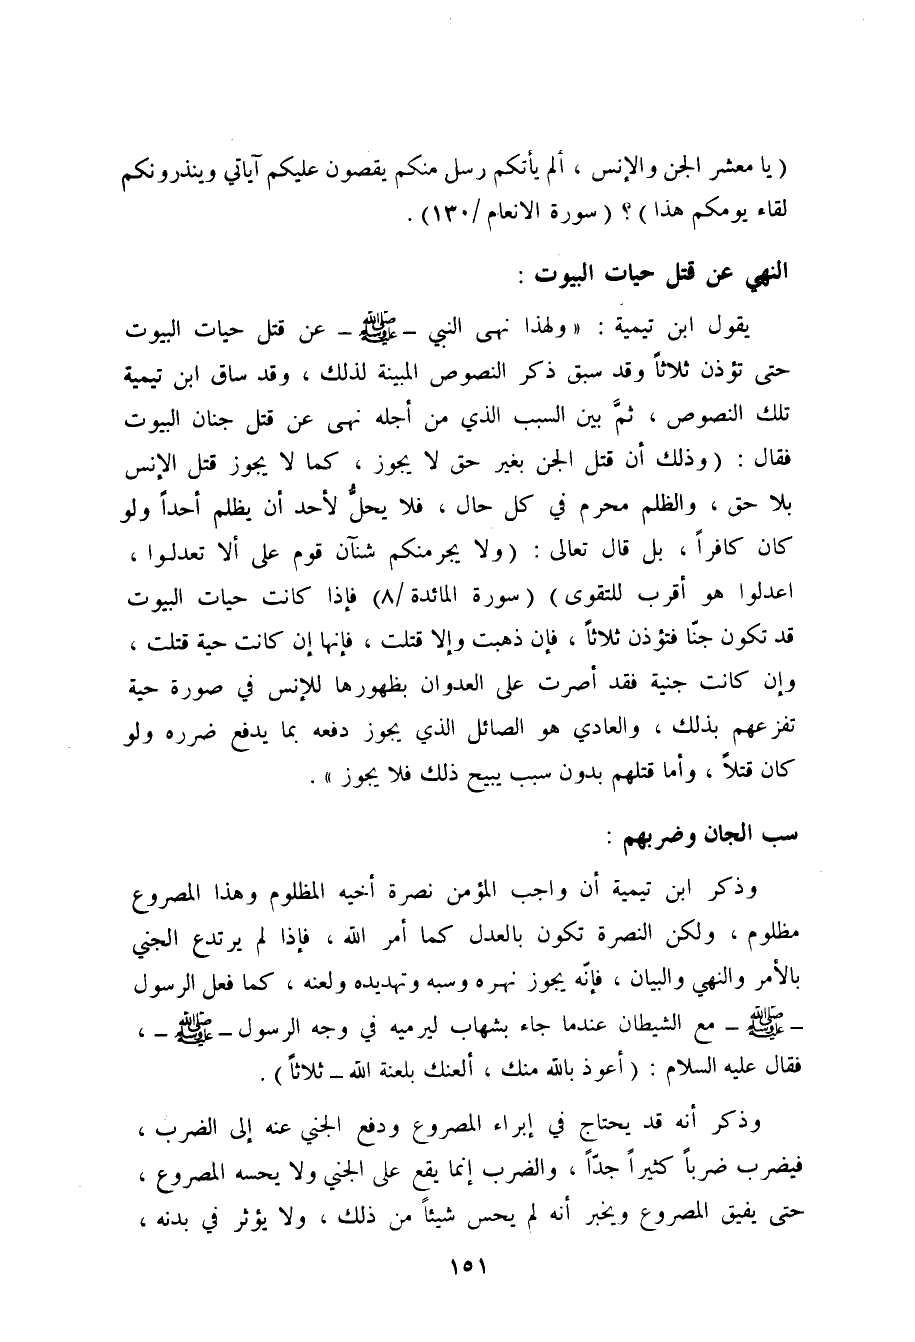 ( يا معشر الجن والإنس ، ألم يأتكم رسل منكم يقصون عليكم آياتي وينذرونكم
لقاء يومكم هذا ) ؟ ( سورة الانعام /١٣٠) .
النهي عن قتل حيات البيوت :
يقول ابن تيمية : « ولهذا نهى النبي ــ ﷺ ــ عن قتل حيات البيوت
حتى تؤذن ثلاثاً وقد سبق ذكر النصوص المبينة لذلك ، وقد ساق ابن تيمية
تلك النصوص ، ثمَّ بين السبب الذي من أجله نهى عن قتل جنان البيوت
فقال : ( وذلك أن قتل الجن بغير حق لا يجوز ، كما لا يجوز قتل الإنس
بلا حق ، والظلم محرم في كل حال ، فلا يحلُّ لأحد أن يظلم أحداً ولو
كان كافراً ، بل قال تعالى : ( ولا يجرمنكم شنآن قوم على ألا تعدلوا ،
اعدلوا هو أقرب للتقوى ) ( سورة المائدة /٨) فإذا كانت حيات البيوت
قد تكون جنّا فتؤذن ثلاثاً ، فإن ذهبت وإلا قتلت ، فإنها إن كانت حية قتلت ،
وإن كانت جنية فقد أصرت على العدوان بظهورها للإنس في صورة حية
تفزعهم بذلك ، والعادي هو الصائل الذي يجوز دفعه بما يدفع ضرره ولو
كان قتلاً ، وأما قتلهم بدون سبب يبيح ذلك فلا يجوز » .
سب الجان وضربهم :
وذكر ابن تيمية أن واجب المؤمن نصرة أخيه المظلوم وهذا المصروع
مظلوم ، ولكن النصرة تكون بالعدل كما أمر الله ، فإذا لم يرتدع الجني
بالأمر والنهي والبيان ، فإنّه يجوز نهره وسبه وتهديده ولعنه ، كما فعل الرسول
ــ ﷺ ــ مع الشيطان عندما جاء بشهاب ليرميه في وجه الرسول ــ ﷺ ــ ،
فقال عليه السلام : ( أعوذ بالله منك ، ألعنك بلعنة الله ــ ثلاثاً ) .
وذكر أنه قد يحتاج في إبراء المصروع ودفع الجني عنه إلى الضرب ،
فيضرب ضرباً كثيراً جدّاً ، والضرب إنما يقع على الجني ولا يحسه المصروع ،
حتى يفيق المصروع ويخبر أنه لم يحس شيئاً من ذلك ، ولا يؤثر في بدنه ،
١٥١